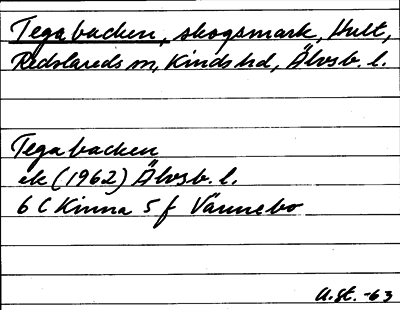 Tegabacken, skogsmark, Hult,
Redslareds sn, Kinds hd, Älvsb. l.
Tegabacken
ek (1962) Älvsb. l.
6 C Kinna 5 f Vännebo
U.St. -63